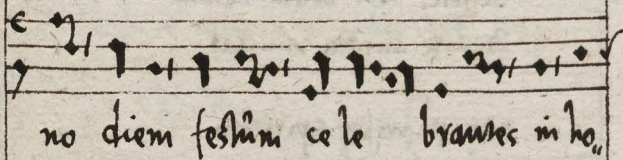 no diem festum ce le brantes in ho„